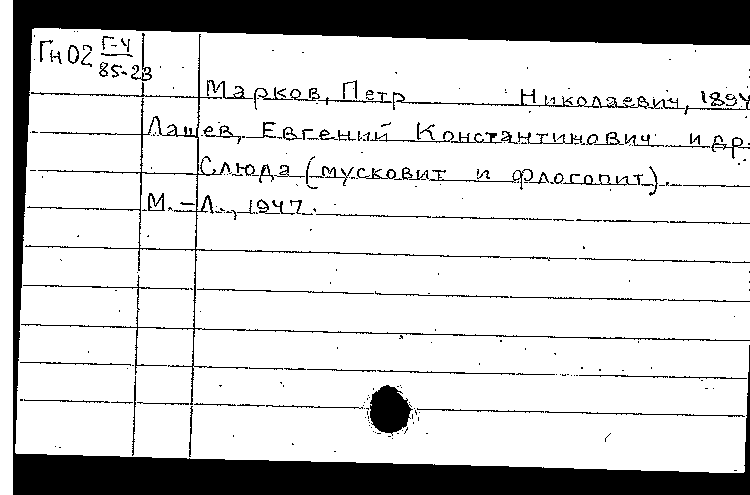 Гн02 Г-4
85-23
Марков, Петр Николаевич, 1894
Лашев, Евгений Константинович и др.
Слюда (мусковит и флогопит).
М.-Л., 1947.